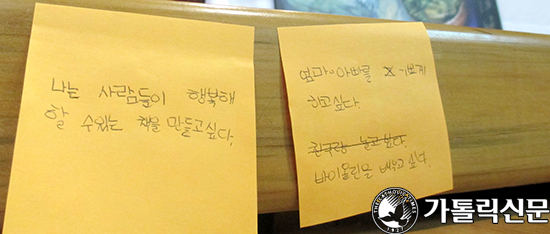 나는 사람들이 행복해
할 수있는 책을 만들고싶다.
엄마·아빠를 기쁘게
하고싶다.
친국랑 놀고 싶다.
바이올린을 배우고 싶다.
가톨릭신문
THE CATHOLIC TIMES
1927